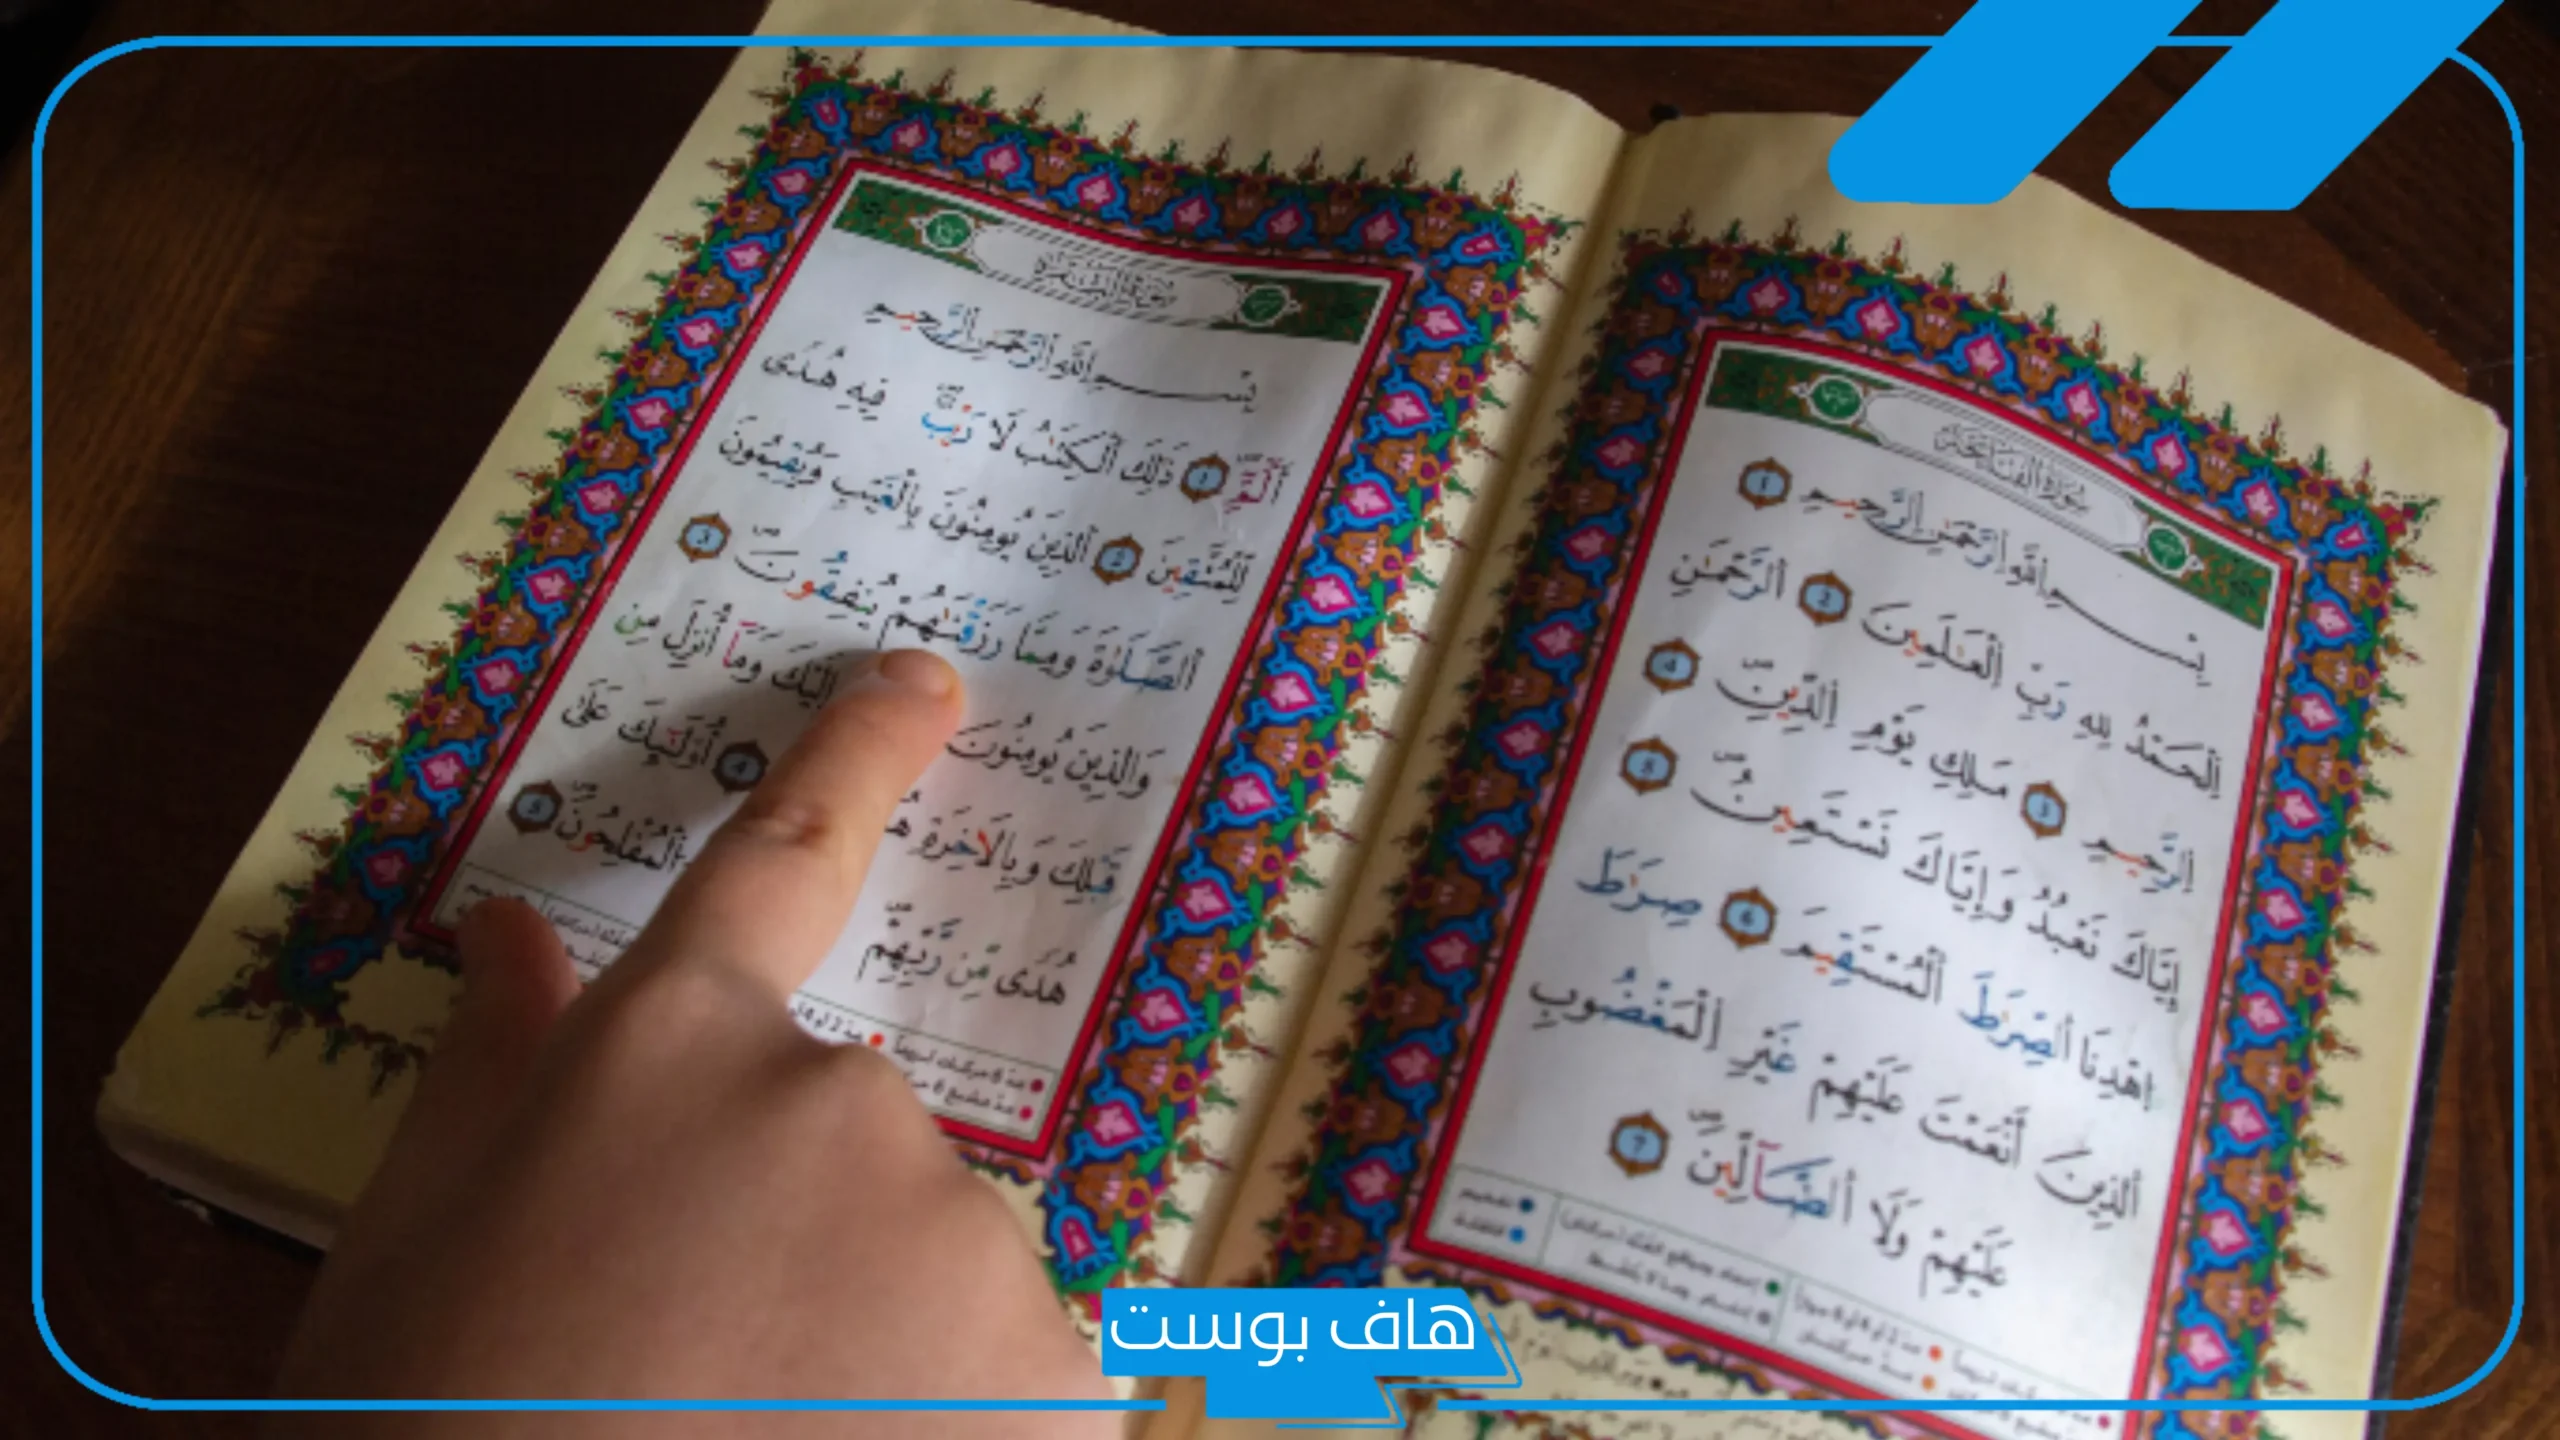 سورة الفاتحة
بِسْمِ اللَّهِ الرَّحْمَٰنِ الرَّحِيمِ 1
الْحَمْدُ لِلهِ رَبِّ الْعَٰلَمِينَ 2 الرَّحْمَٰنِ
الرَّحِيمِ 3 مَٰلِكِ يَوْمِ الدِّينِ 4
إِيَّاكَ نَعْبُدُ وَإِيَّاكَ نَسْتَعِينُ 5
اهْدِنَا الصِّرَٰطَ الْمُسْتَقِيمَ 6 صِرَٰطَ
الذِينَ أَنْعَمْتَ عَلَيْهِمْ غَيْرِ الْمَغْضُوبِ
عَلَيْهِمْ وَلَا الضَّآلِّينَ 7
سورة البقرة
بِسْمِ اللَّهِ الرَّحْمَٰنِ الرَّحِيمِ
الٓمٓ 1 ذَٰلِكَ الْكِتَٰبُ لَا رَيْبَ فِيهِ هُدًى
لِّلْمُتَّقِينَ 2 الذِينَ يُومِنُونَ بِالْغَيْبِ وَيُقِيمُونَ
الصَّلَوٰةَ وَمِمَّا رَزَقْنَٰهُمْ يُنفِقُونَ 3
وَالذِينَ يُومِنُونَ إِلَيْكَ وَمَآ أُنزِلَ مِن
قَبْلِكَ وَبِالَاخِرَةِ 4 أُوْلَٰٓئِكَ عَلَىٰ
هُدًى مِّن رَّبِّهِمْ الْمُفْلِحُونَ 5
هاف بوست